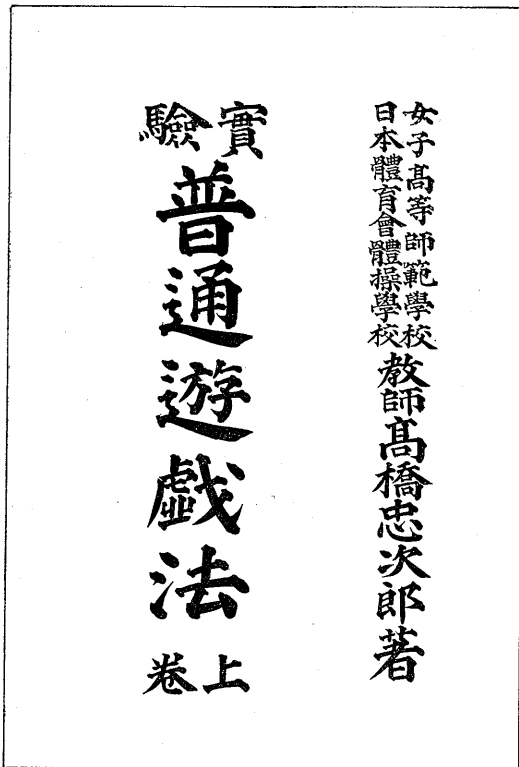 女子高等師範學校
日本體育會體操學校
教師高橋忠次郎著
實驗
普通遊戯法
上卷